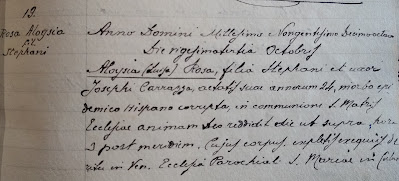 13.
Rosa Aloysia
fil.
Stephani
Anno Domini Millesimo Nongentesimo Decimo octavo
Die vigesimatertia Octobris
Aloysia (Luigia) Rosa, filia Stephani et uxor
Josephi Carrazza, aetatis suae annorum 24, morbo epi
demico Hispano correpta, in communione S. Matris
Ecclesiae animam Deo reddidit die ut supra, hora
3 post meridiem. Cujus corpus expletis exequiis de
ritu in Ven. Ecclesia Parochiali S. Mariae in